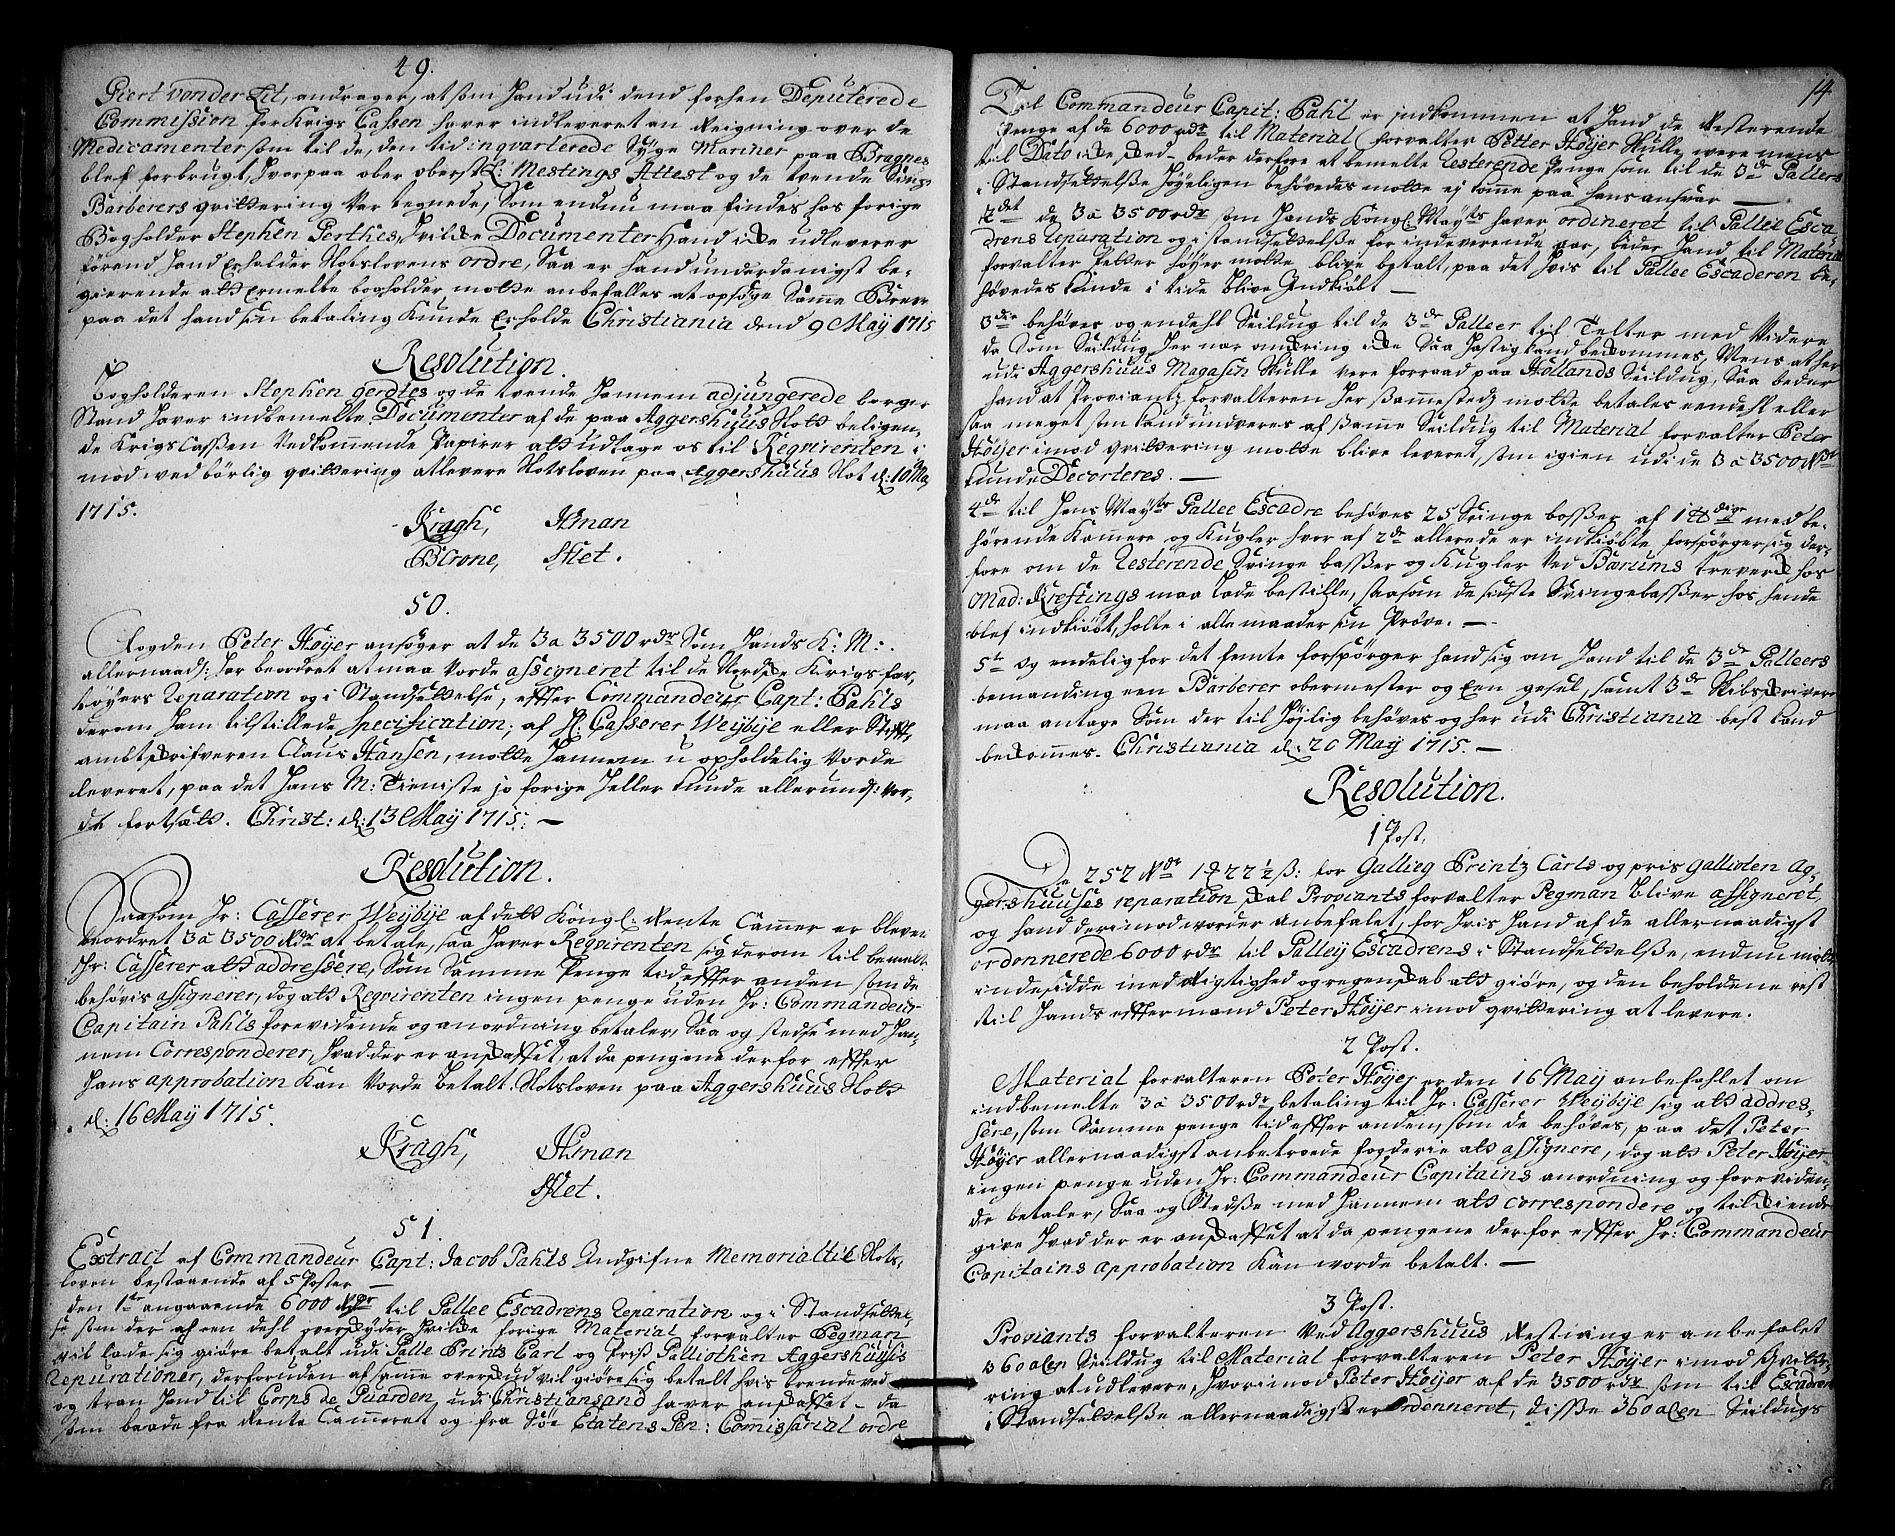 49.
Giert vonder Lit, andrager, at som hand udi dend forhen Deputerede
Commission for Krigs Cassen haver indleveret en Reigning over de
Medicamenter som til de, den tid inqvarterede syge Mariner paa Bragnes
blef forbrugt, hvorpaa ober oberstl: Mestings Attest og de tvende
Barberers qvittering var tegnede, som endnu maa findes hos forige
Bogholder Stephen Gerthes, hvilke Documenter hand icke udleverer
førend hand erholder Slotslovens ordre, Saa er hand underdanigst be-
gierende att ermelte bogholder motte anbefalles at opsøge samme Breve
paa det hand sin betaling kunde erholde Christiania dend 9 May 1715
Resolution.
Bogholderen Stephen gerdtes og de tvende hannem adjungerede borger
Stand haver indbemelte Documenter af de paa Aggershuus Slott beligen-
de Krigs Cassen vedkommende Papirer att udtage os til Reqvirenten i
mod ved børlig qvittering at levere Slotsloven paa Aggershuus Slot d: 10 May
1715.
Kragh, Hman
BCrone, Met.
50.
Fogden Peter Høyer ansøger at de 3 a 3500 rdr som hands K: M:
allernaads: har beordret at maa vorde assigneret til de Norske Krigs far-
tøyers Reparation og i Standsettelse, effter Commandeur Capt: Pahls
derom ham tilstillede specification, af H: Casserer Weybye eller Stiffts
ambtskrifveren Claus Hansen, motte hannem u opholdelig vorde
leveret, paa det hans M: Tieniste jo forige heller kunde allerunds: vor-
de fortsatt. Christ: d: 13 May 1715. —
Resolution.
Saasom Hr: Casserer Weybye af dett Kongl: Rente Cammer er bleven
beordret 3 a 3500 Rdr at betale, saa haver Reqvirenten sig derom til bemelt
Hr: Casserer att addressere, som samme Penge tid effter anden som de
behøvis assignerer, dog att Reqvirenten ingen penge uden Hr: Commandeur
Capitain Pahls forevidende og anordning betaler, Saa og stedse med han-
nem Corresponderer, hvad der er anskaffet, at da pengene derfor effter
hans approbation kan vorde betalt. Slotsloven paa Aggershuus Slott
d: 16 May 1715.
Kragh, Hman
Met.
51.
Extract af Commandeur Capt: Jacob Pahls Indgifne Memorial til Slots-
loven bestaaende af 5 Poster —
den 1ste angaaende 6000 Rdr til Gallee Escadrens Reparation og i Standsettel-
se som der af en dehl overskyder hvilke forige Material forvalter Pegman
vil lade sig giøre betalt udi Galle Prints Carl og Pris Galliothen Aggershuusis
Reparationer, derforuden af samme overskud vil giøre sig betalt hvis brendeved
og tran hand til Corps de Guarden udi Christiansand haver anskaffet – da
som baade fra Rente Cammeret og fra Søe Etatens Gen: Comissariat ordre
14
Til Commandeur Capit: Pahl er indkommen at hand de resterende
Penge af de 6000 rdr til Material forvalter Petter Høyer skulle were mens
til Dato icke sked – beder derfore at bemelte resterende Penge som til de 3de Galleers
i Standsettelse høyeligen behøvedes motte ej komme paa hans ansvar —
2det de 3 a 3500 rdr som hands Kongl. Mayts haver ordineret til Gallee Esca
drens Reparation og istandsettelse for indeverende aar, beder hand til Material
forvalter Petter Høyer motte blive betalt, paa det hvis til Gallee Escaderen be-
høvedes kunde i tide blive Indkiøbt —
3die behøves og endehl Seildug til de 3de Galleer til Telter med videre
da som Seildug her nær omkring icke saa hastig kand bekommes, Mens at her
udi Aggershuus Magasin skulle vere forraad paa Hollands Seildug, Saa beder
hand at Proviantz forvalteren her sammestedz motte betales eendehl eller
saa meget som kand undveres af samme Seildug til Material forvalter Peter
Høyer imod qvittering motte blive leveret, som igien udi de 3 a 3500 Rdr
kunde Decorteres. —
4de til Hans Mayts Gallee Escadre behøves 25 Svinge basser af 1 ℔dige med be-
hørende Kammere og Kugler hvor af 2de allerede er indkiøbte forspørger sig der-
fore om de resterende Svinge basser og Kugler ved Bærums Jernverck hos
Mad: Kreftings maa lade bestille, saasom de sidste Svingebasser hos hende
blef indkiøbt, holte i alle maader sin Prøve. —
5te og endelig for det femte forspørger hand sig om hand til de 3de Galleers
bemanding een Barberer obermester og Een gesel, samt 3de Skibskrivere
maa antage som der til høylig behøves og her udi Christiania best kand
bekommes. Christiania d: 20 May 1715. —
Resolution.
1 Post.
De 252 Rdr 1 ꝗ 22½ ß: for Gallieg Printz Carls og pris Gallioten Ag-
gershuuses reparation skal Proviants forvalter Pegman blive assigneret,
og hand derimod vorder anbefalet, for hvis hand af de allernaadigst
ordonnerede 6000 rdr til Galley Escadrens i Standsettelse, endnu motte
indesidde med Rigtighed og regenskab att giøre, og den beholdene rest
til hands effter mand Peter Høyer imod qvittering at levere.
2 Post.
Material forvalteren Peter Høyer er den 16 May anbefallet om
indbemelte 3 a 3500 rdrs betaling til Hr: Casserer Weybye sig att addres-
sere, som samme penge tid effter anden, som de behøves, paa det Peter
Høyer allernaadigst anbetroede fogderie att assignere, dog att Peter Høyer
ingen penge uden Hr: Commandeur Capitains anordning og forevidende
de betaler, Saa og stedse med hannem att correspondere og tilkiende
give hvad der er anskaffet at da pengene derfor effter Hr: Commandeur
Capitains approbation kan worde betalt. —
3 Post.
Proviants forvalteren ved Aggershuus Festning er anbefalet
360 alen Seildug til Material forvalteren Peter Høyer imod qvitte-
ring at udlevere, hvorimod Peter Høyer af de 3500 rdr som til Escadrens
i Standsettelse allernaadigst er ordonneret, disse 360 alen Seildugs